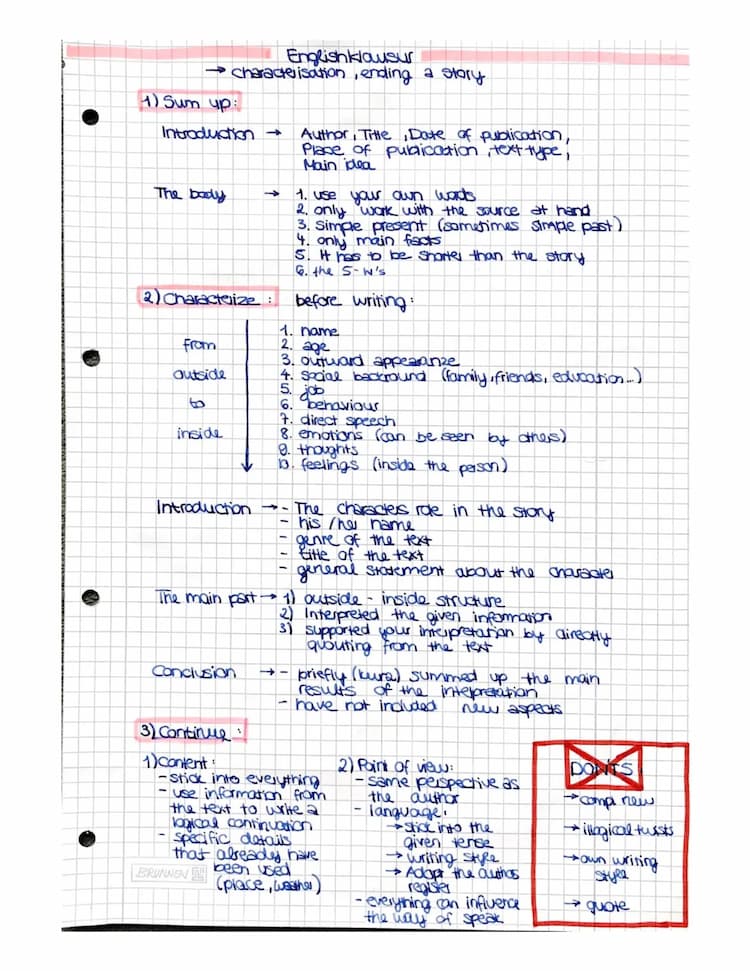 Englishklausur
→ characterisation, ending a story
1) Sum up:
Introduction → Author, Title, Date of publication,
Place of publication, text type,
Main idea
The body → 1. use your own words
2. only work with the source at hand
3. simple present (sometimes simple past)
4. only main facts
5. It has to be shorter than the story
6. the 5-W's
2) Characterize: before writing:
from
outside
to
inside
1. name
2. age
3. outward appearanze
4. social backround (family, friends, education...)
5. job
6. behaviour
7. direct speech
8. emotions (can be seen by others)
9. thoughts
10. feelings (inside the person)
Introduction → - The characters role in the story
- his/her name
- genre of the text
- title of the text
- general statement about the character
The main part → 1) outside - inside structure
2) Interpreted the given information
3) supported your interpretation by directly
quouting from the text
Conclusion → - briefly (kurz) summed up the main
results of the interpretation
- have not included new aspects
3) Continue:
1) Content:
- stick into everything
- use information from
the text to write a
logical continuation
- specific details
that already have
been used
(place, weather)
BRUNNEN
2) Point of view:
- same perspective as
the author
- language:
→ stick into the
given tense
→ writing style
→ Adapt the authors
register
- everything can influence
the way of speak
DON'TS
→ comp. new
→ illogical twists
→ own writing
style
→ quote